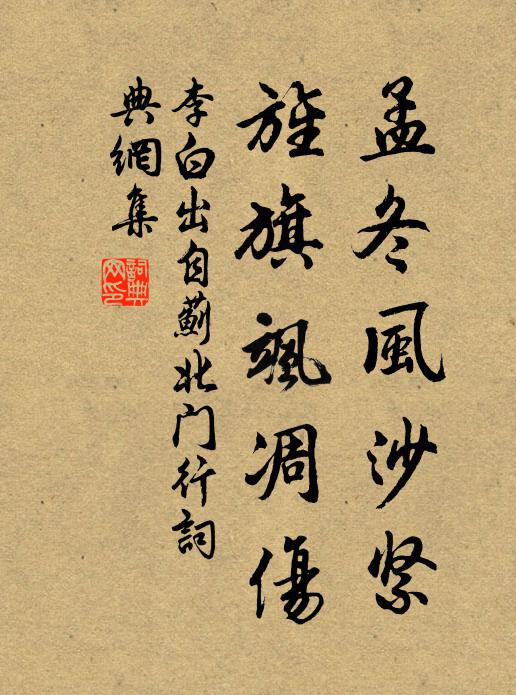 孟冬風沙緊
旌旗颯凋傷
李白出自薊北门行詞
典網集
詞典
网印